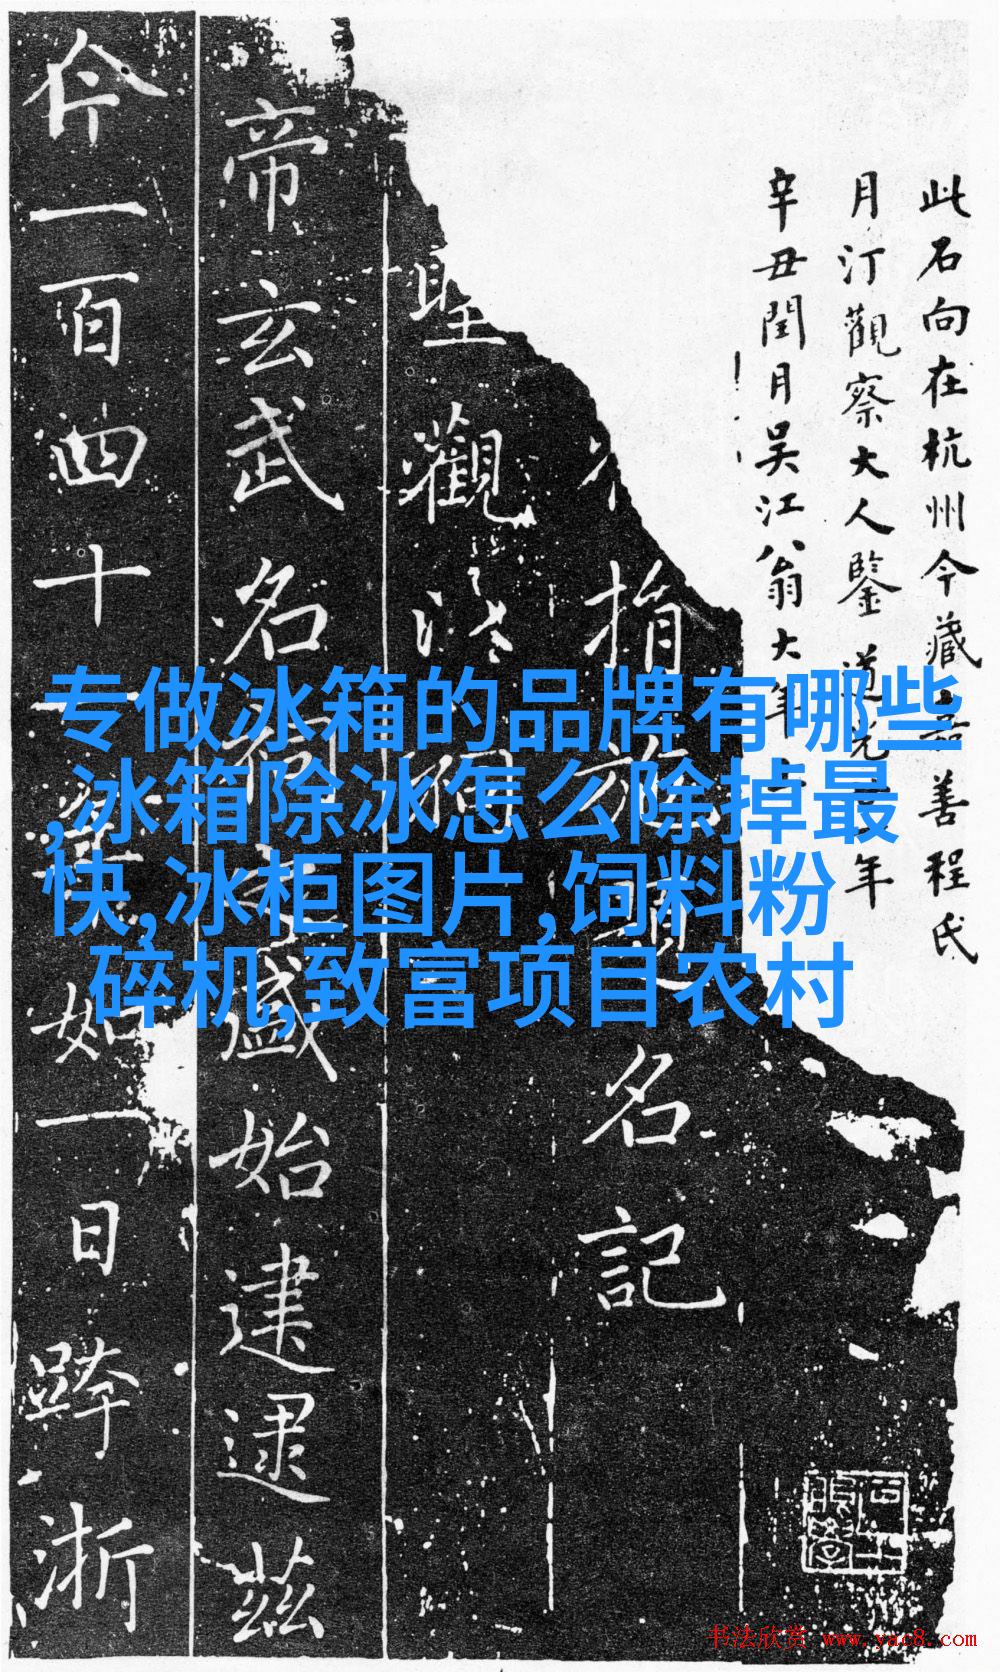 此石向在杭州今藏善程氏
月汀觀察大人鑒道年
辛丑閏月吳江翁大年上
指名記
聖觀
帝玄武名祠盛始建逮茲
今一百四十如一日浙
专做冰箱的品牌有哪些
,冰箱除冰怎么除掉最
快,冰柜图片,饲料粉
碎机,致富项目农村
书法欣赏 www.yac8.com